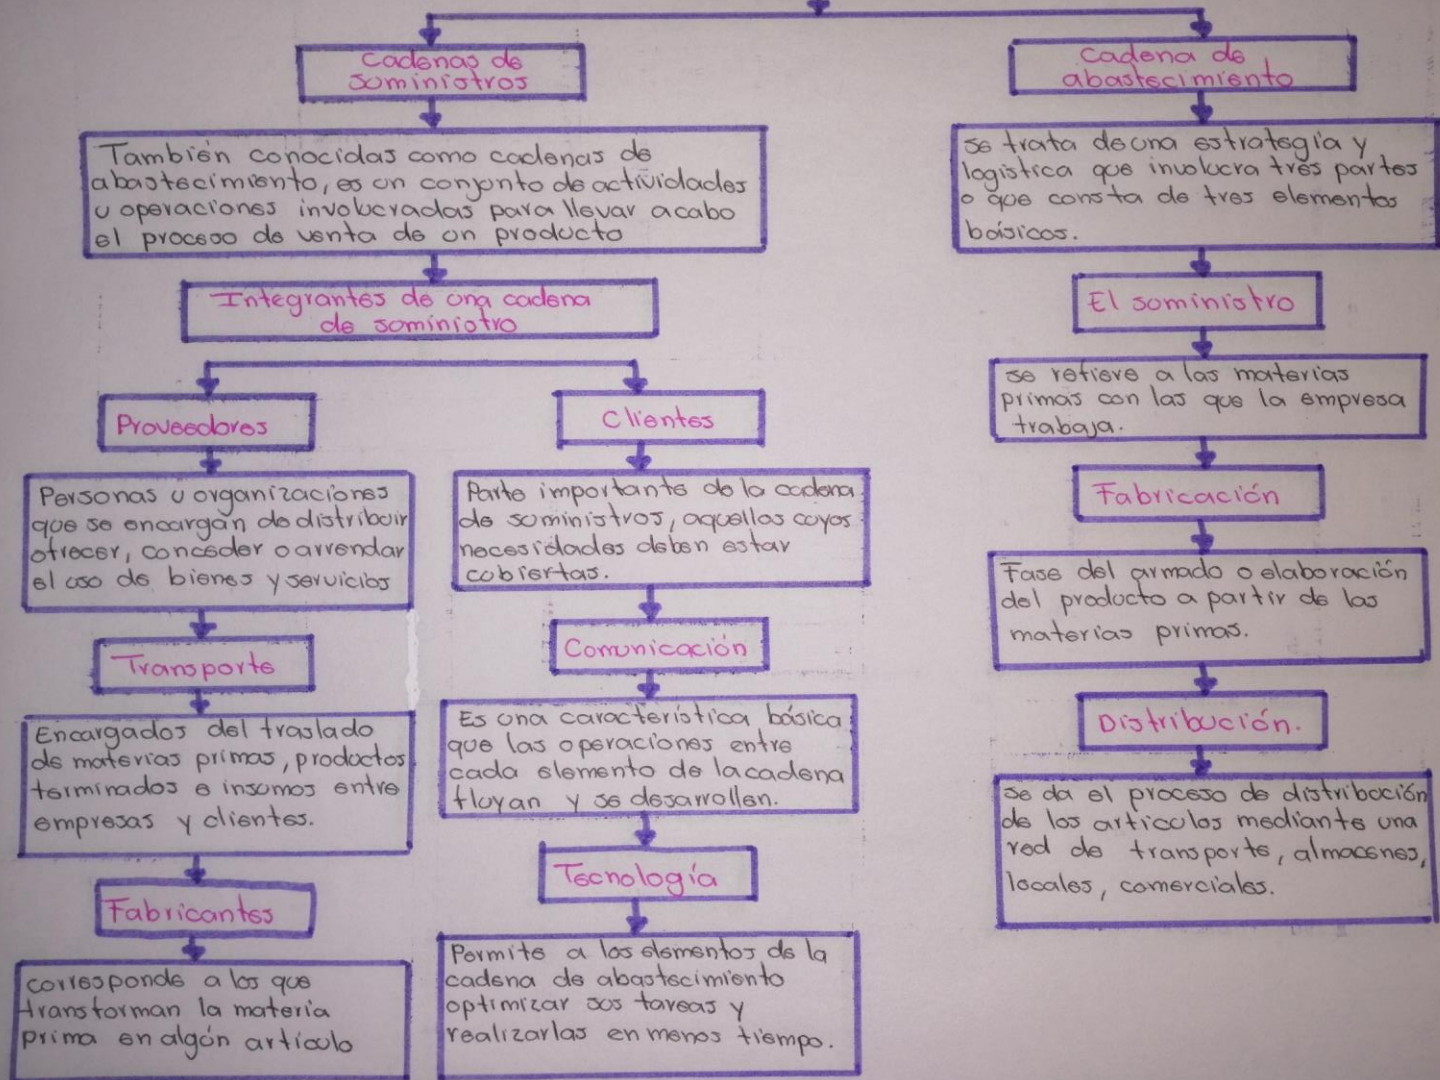 Cadenas de
suministros
También conocidas como cadenas de
abastecimiento, es un conjunto de actividades
u operaciones involucradas para llevar acabo
el proceso de venta de un producto
Integrantes de una cadena
de suministro
Proveedores
Personas u organizaciones
que se encargan de distribuir
ofrecer, conceder o arrendar
el uso de bienes y servicios
Transporte
Encargados del traslado
de materias primas, productos
terminados e insumos entre
empresas y clientes.
Fabricantes
corresponde a los que
transforman la materia
prima en algún artículo
Clientes
Parte importante de la cadena
de suministros, aquellos cuyos
necesidades deben estar
cubiertas.
Comunicación
Es una característica básica
que las operaciones entre
cada elemento de la cadena
fluyan y se desarrollen.
Tecnología
Permite a los elementos de la
cadena de abastecimiento
optimizar sus tareas y
realizarlas en menos tiempo.
Cadena de
abastecimiento
se trata de una estrategia y
logistica que involucra tres partes
o que consta de tres elementos
básicos.
El suministro
se refiere a las materias
primas con las que la empresa
trabaja.
Fabricación
Fase del armado o elaboración
del producto a partir de las
materias primas.
Distribución.
se da el proceso de distribución
de los articulos mediante una
red de transporte, almacenes,
locales, comerciales.